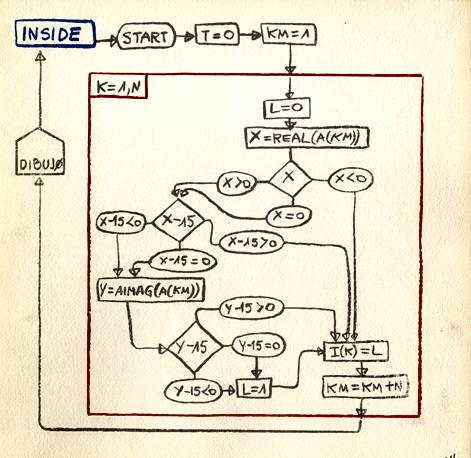 INSIDE
START
T=0
KM=1
K=1,N
L=0
X=REAL(A(KM))
X
X>0
X<0
X=0
X-15
X-15<0
X-15>0
X-15=0
Y=AIMAG(A(KM))
Y-15
Y-15>0
Y-15=0
Y-15<0
L=1
I(K)=L
KM=KM+N
DIBUJØ